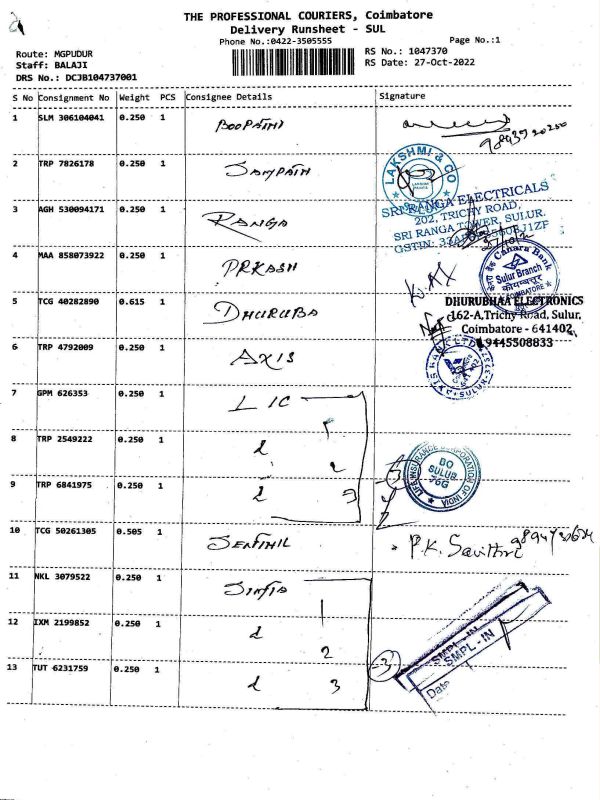 THE PROFESSIONAL COURIERS, Coimbatore
Delivery Runsheet - SUL
Phone No.:0422-3505555 Page No.:1
Route: MGPUDUR RS No.: 1047370
Staff: BALAJI RS Date: 27-Oct-2022
DRS No.: DCJB104737001
S No Consignment No Weight PCS Consignee Details Signature
1 SLM 306104041 0.250 1 BOOPATHI
2 TRP 7826178 0.250 1 SAMPATH
LAKSHMI & CO
3 AGH 530094171 0.250 1 RANGA
SRI RANGA ELECTRICALS
202, TRICHY ROAD,
SRI RANGA TOWER, SULUR.
4 MAA 858073922 0.250 1 PRKASH
Canara Bank
Sulur Branch
COIMBATORE
5 TCG 40282890 0.615 1 DHURUBA
DHURUBHAA ELECTRONICS
162-A,Trichy Road, Sulur,
Coimbatore - 641402
9445508833
6 TRP 4792009 0.250 1 AXIS
7 GPM 626353 0.250 1 LIC
8 TRP 2549222 0.250 1 2
9 TRP 6841975 0.250 1 3
LIFE INSURANCE CORPORATION OF INDIA
BO
SULUR
76G
10 TCG 50261305 0.505 1 SENTHIL P.K. Savithri
11 NKL 3079522 0.250 1 1
12 IXM 2199852 0.250 1 2
13 TUT 6231759 0.250 1 3
3
SMPL - IN
SMPL - IN
Date